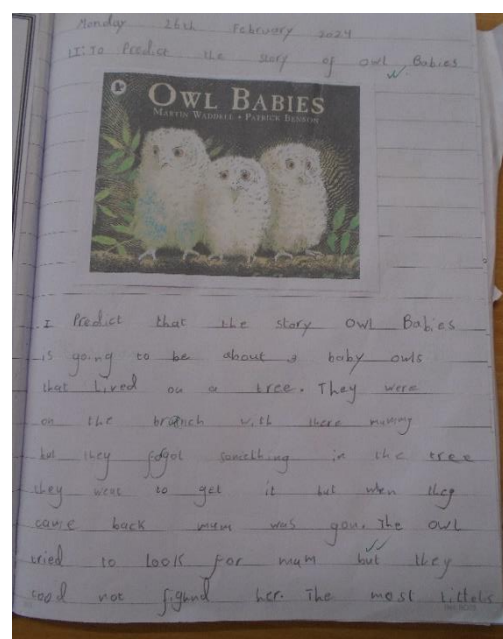 Monday 26th February 2024
LI: To Predict the story of owl Babies
OWL BABIES
MARTIN WADDELL • PATRICK BENSON
I Predict that the story Owl Babies
is going to be about 3 baby owls
that Lived on a tree. They were
on the branch with there mummy
but they fogot something in the tree
they went to get it but when they
came back mum was gon. The owl
tried to look for mum but they
cood not fighnd her. The most Littels